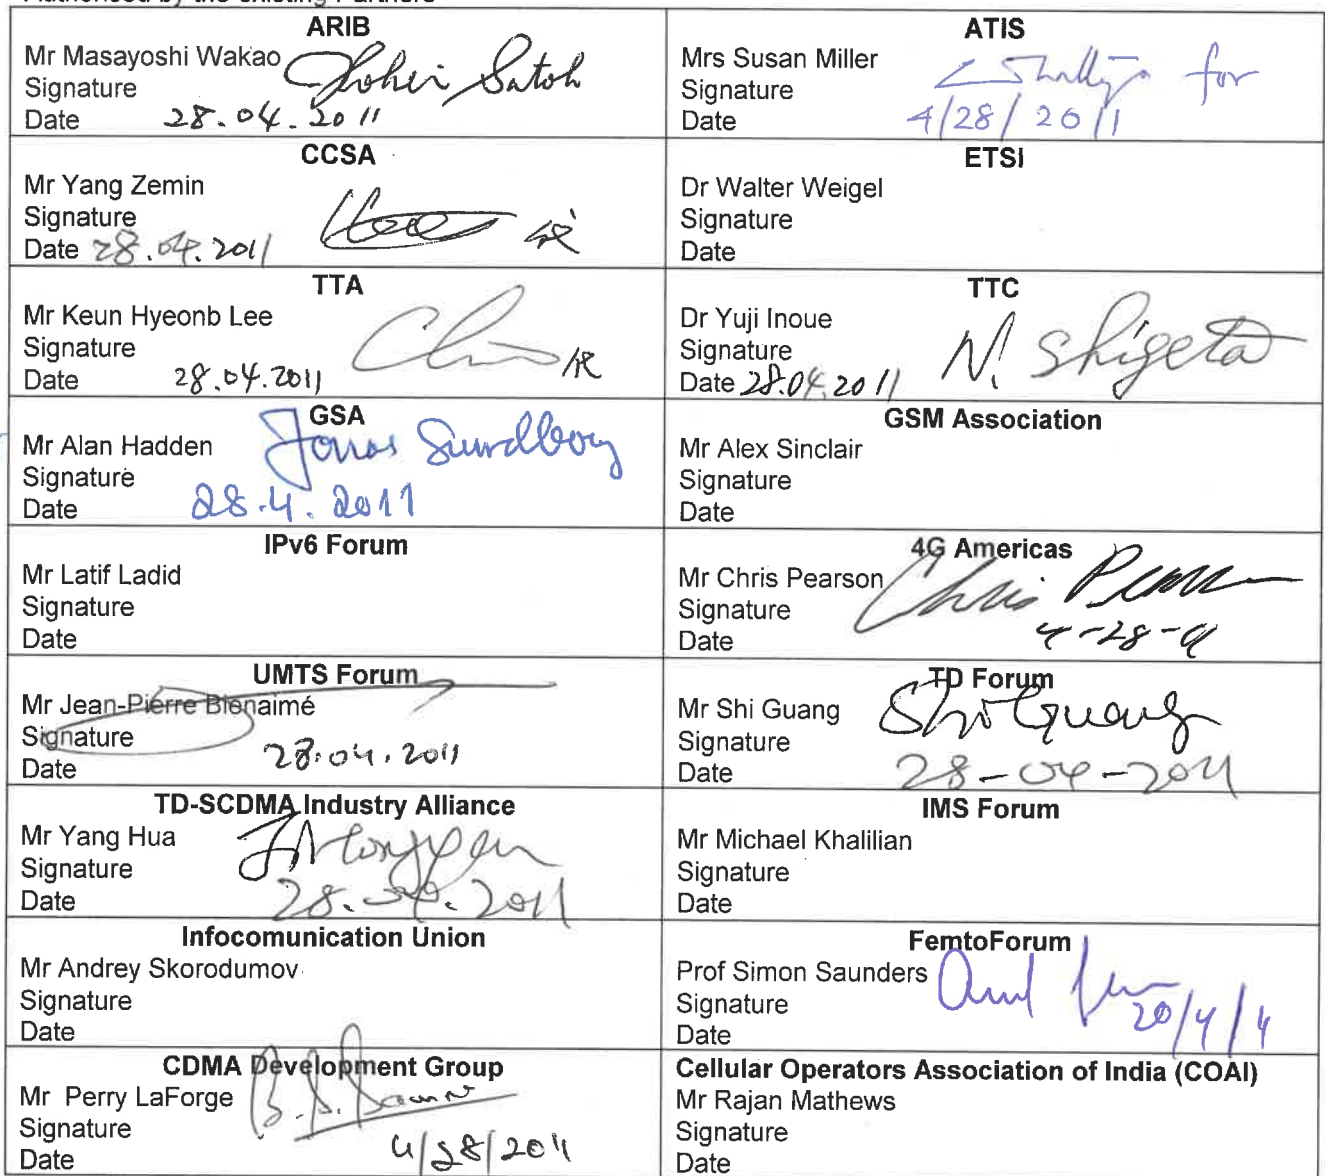 ARIB
Mr Masayoshi Wakao
Signature Johei Satoh
Date 28.04.2011
ATIS
Mrs Susan Miller
Signature for
Date 4/28/2011
CCSA
Mr Yang Zemin
Signature
Date 28.04.2011
ETSI
Dr Walter Weigel
Signature
Date
TTA
Mr Keun Hyeonb Lee
Signature
Date 28.04.2011
TTC
Dr Yuji Inoue
Signature N. Shigeta
Date 28.04.2011
GSA
Mr Alan Hadden
Signature Jonas Sundborg
Date 28.4.2011
GSM Association
Mr Alex Sinclair
Signature
Date
IPv6 Forum
Mr Latif Ladid
Signature
Date
4G Americas
Mr Chris Pearson
Signature Chris Pearson
Date 4-28-11
UMTS Forum
Mr Jean-Pierre Bienaimé
Signature
Date 28.04.2011
TD Forum
Mr Shi Guang
Signature Shi Guang
Date 28-04-2011
TD-SCDMA Industry Alliance
Mr Yang Hua
Signature
Date 28.04.2011
IMS Forum
Mr Michael Khalilian
Signature
Date
Infocomunication Union
Mr Andrey Skorodumov
Signature
Date
FemtoForum
Prof Simon Saunders
Signature
Date
CDMA Development Group
Mr Perry LaForge
Signature
Date 4/28/2011
Cellular Operators Association of India (COAI)
Mr Rajan Mathews
Signature
Date